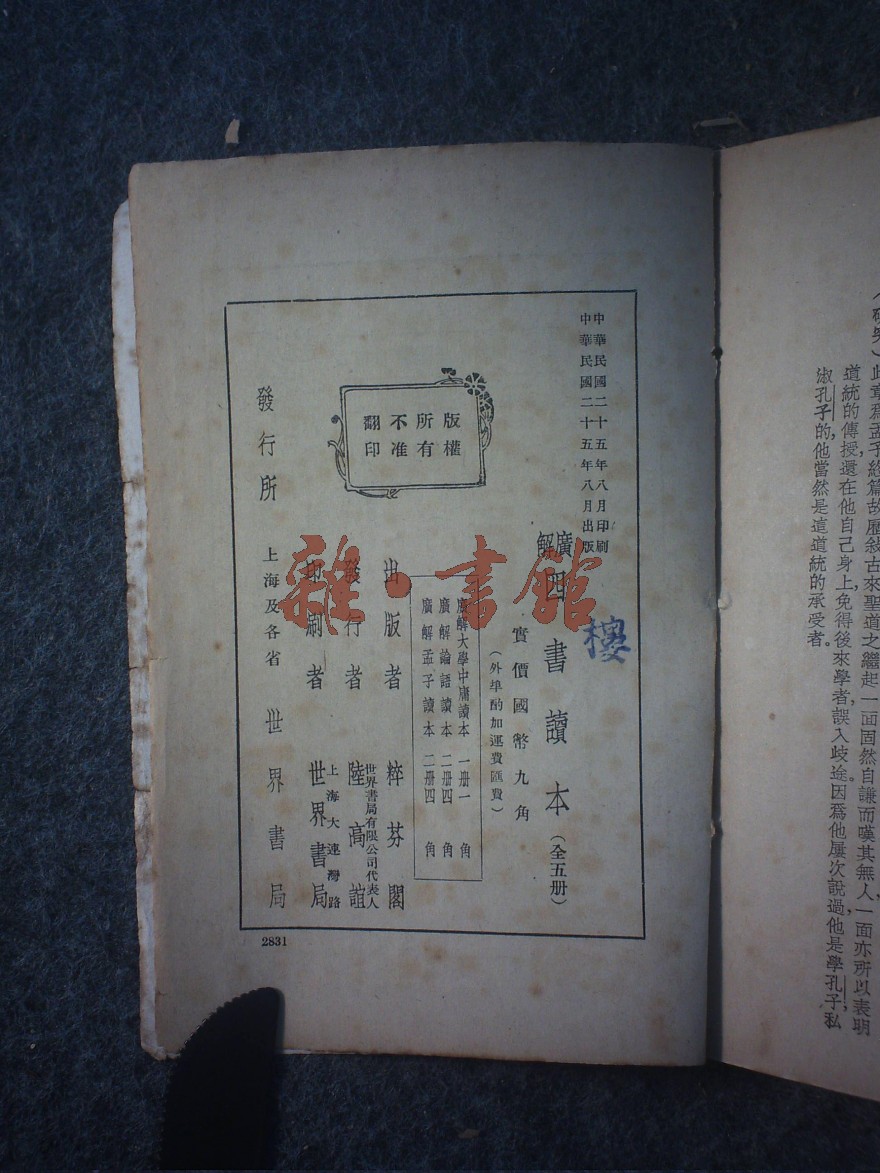 此章爲孟子終篇故歷敍古來聖道之繼起一面固然自謙而嘆其無人一面亦所以表明
道統的傳授還在他自己身上免得後來學者誤入歧途因爲他屢次說過他是學孔子私
淑孔子的他當然是這道統的承受者。
中華民國二十五年八月印刷
中華民國二十五年八月出版
廣解四書讀本(全五册)
實價國幣九角
(外埠酌加運費匯費)
廣解大學中庸讀本 一册一角
廣解論語讀本 二册四角
廣解孟子讀本 二册四角
版權
所有
不准
翻印
出版者 粹芬閣
世界書局有限公司代表人
發行者 陸高誼
上海大連灣路
印刷者 世界書局
發行所 上海及各省 世界書局
2831
樓
雜·書館